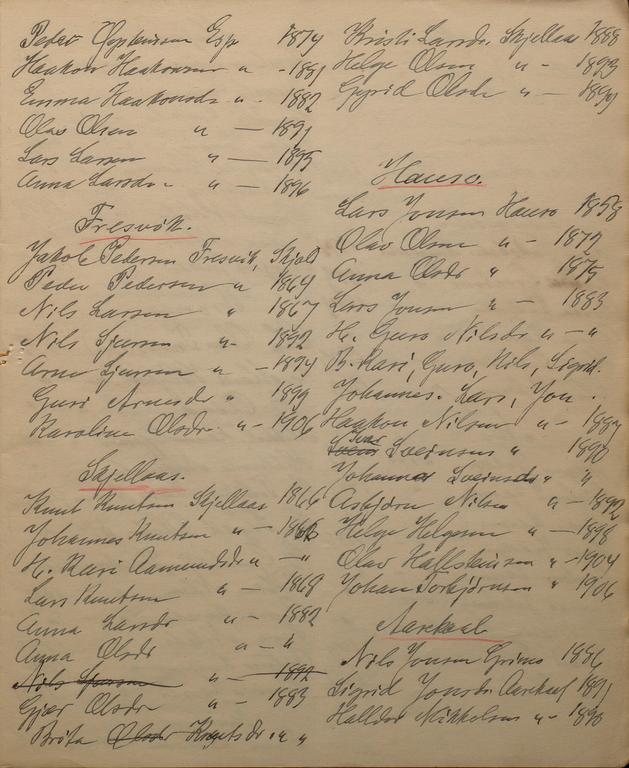 Peder Esp 1874
Haakon Haakonsen " - 1881
Emma Haakonsdr " - 1882
Olav Olsen " — 1891
Lars Larsen " — 1895
Anna Larsdr - " — 1896
Fresvik.
Jakob Pedersen Fresvik, Skjeld
Peder Pedersen " 1864
Nils Larsen " 1867
Nils Sjursen " - 1892
Arne Sjursen " - 1894
Guri Arnesdr " 1899
Karoline Olsdr. " - 1906
Skjellaas.
Knut Knutsen Skjellaas 1866
Johannes Knutsen " —
H. Kari Aamundsdr " — "
Lars Knutsen " — 1868
Anna Larsdr " — 1882
Anna Olsdr " — "
Nils Sjursen " — 1892
Gjør Olsdr " - 1883
Brita Olsdr Knutsdr " "
Kristi Larsdr. Skjellaas 1888
Helge Olsen " - 1893
Gyrid Olsdr " — 1891
Hauso.
Lars Jonsen Hauso 1858
Olav Olsen " - 1879
Anna Olsdr " 1875
Lars Jonsen " — 1883
H. Guro Nilsdr " — "
B. Kari, Guro, Nils, Sigrid.
Johannes. Lars, Jon.
Haakon Nilsen " - 1887
Ivar Sveinsen " 1890
Johannes Sveinsen " "
Asbjørn Nilsen " — 1892
Helge Helgesen " — 1898
Olav Halfsteinsen " - 1904
Johan Torbjørnsen " 1906
Aarekaal
Nils Jonsen Grimo 1886
Sigrid Jonsdr. Aarekaal 1891
Halldor Mikkelsen " - 1890